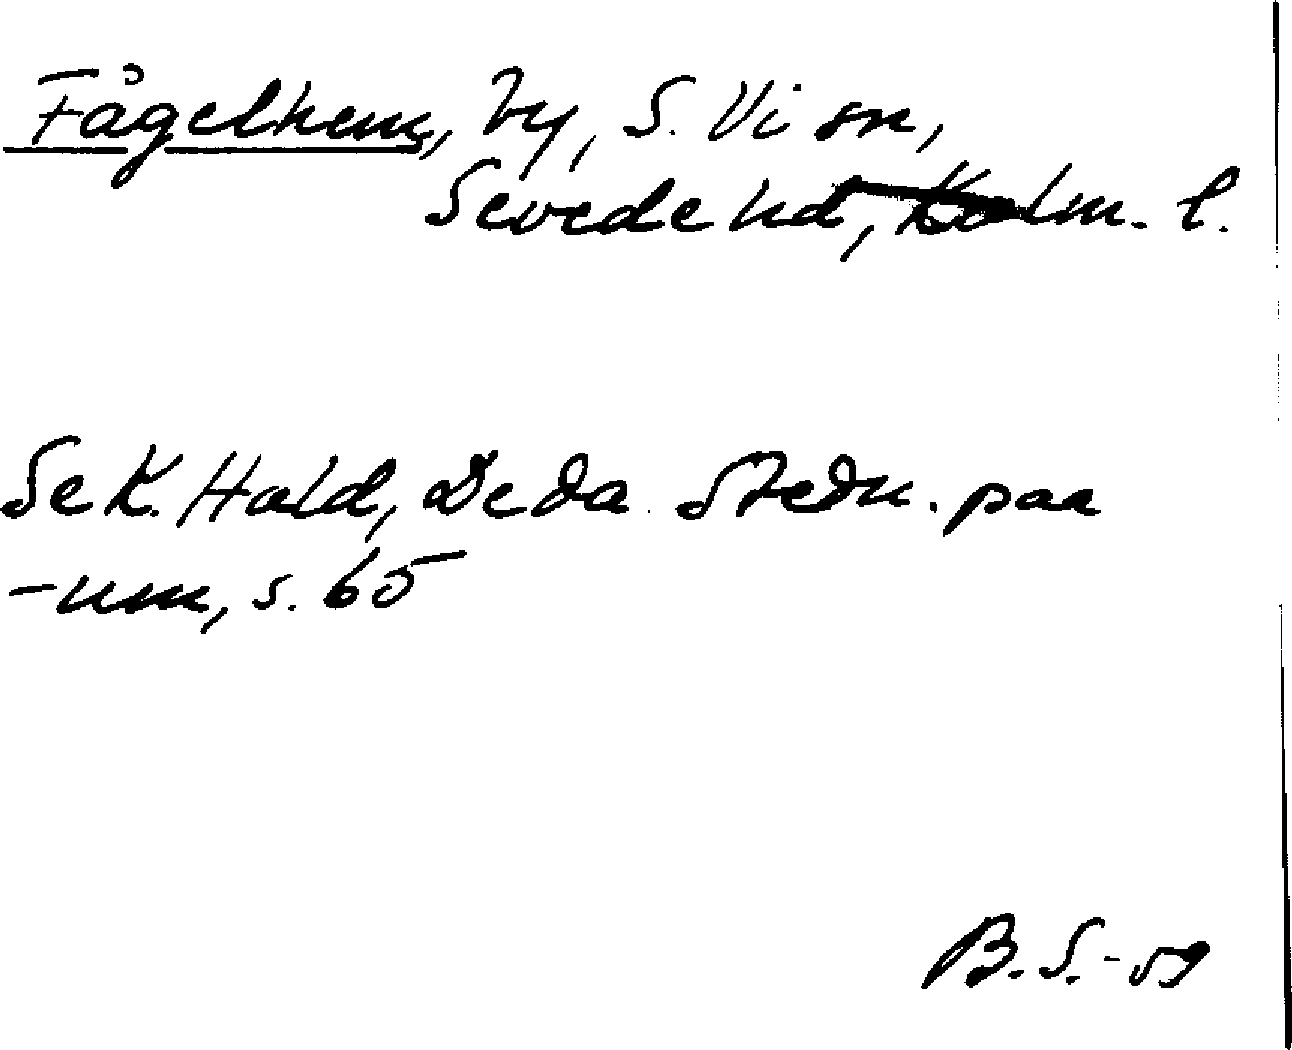 Fågelhem, by, S. Vi sn,
Sevede hd, Kalm. l.
Se K. Hald, De da. Stedn. paa
-um, s. 65
B. S. -59